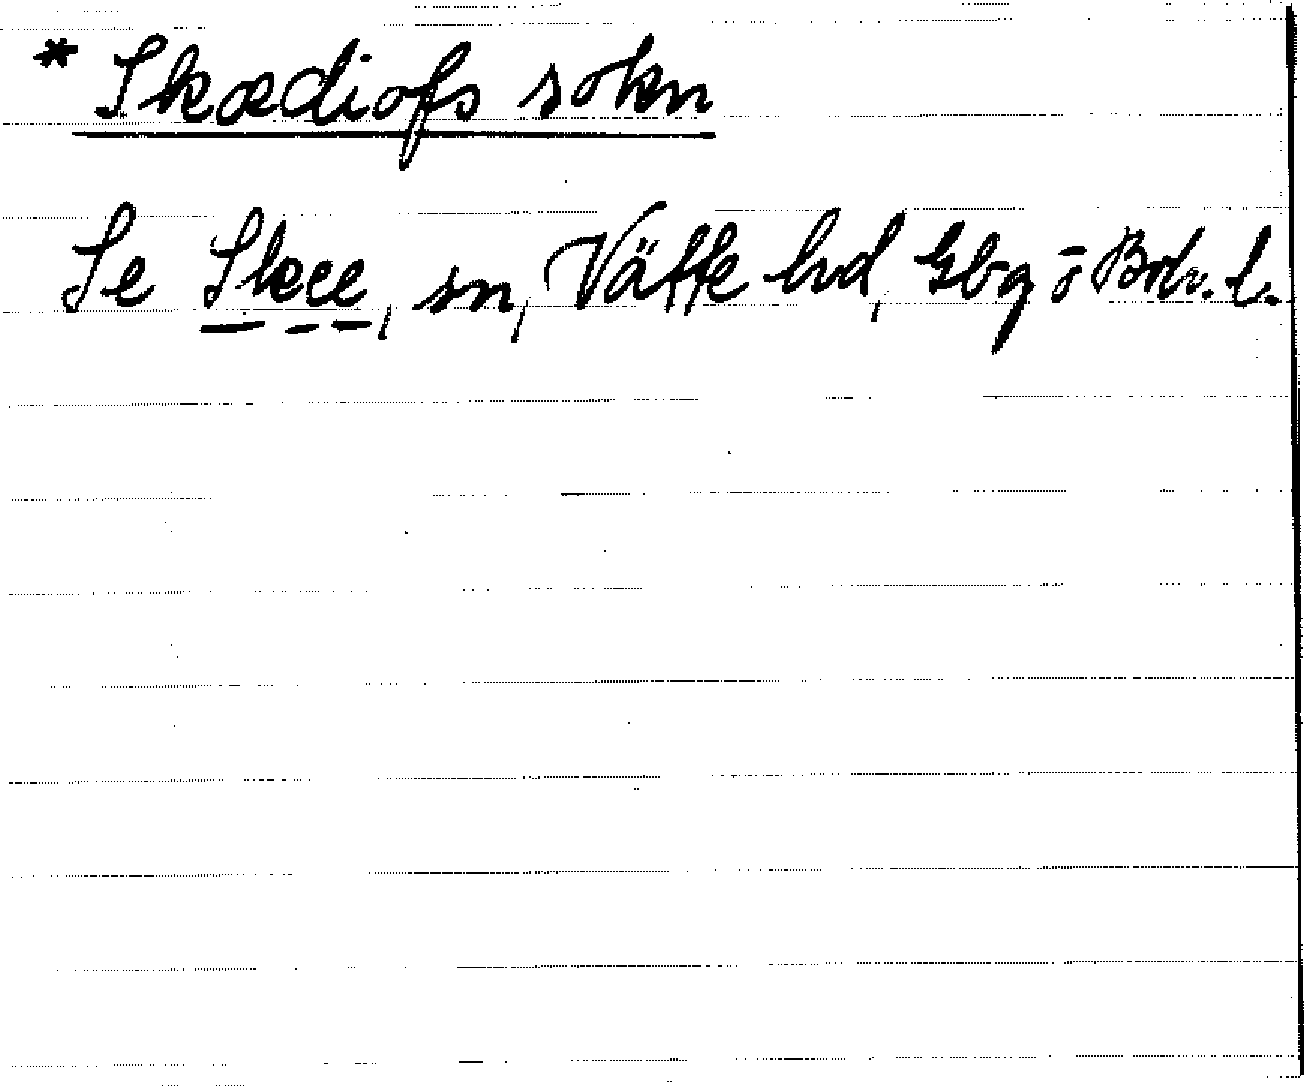 * Skædiofs sokn
Se Skee, sn, Vätte hd, Gbg o Boh. l.